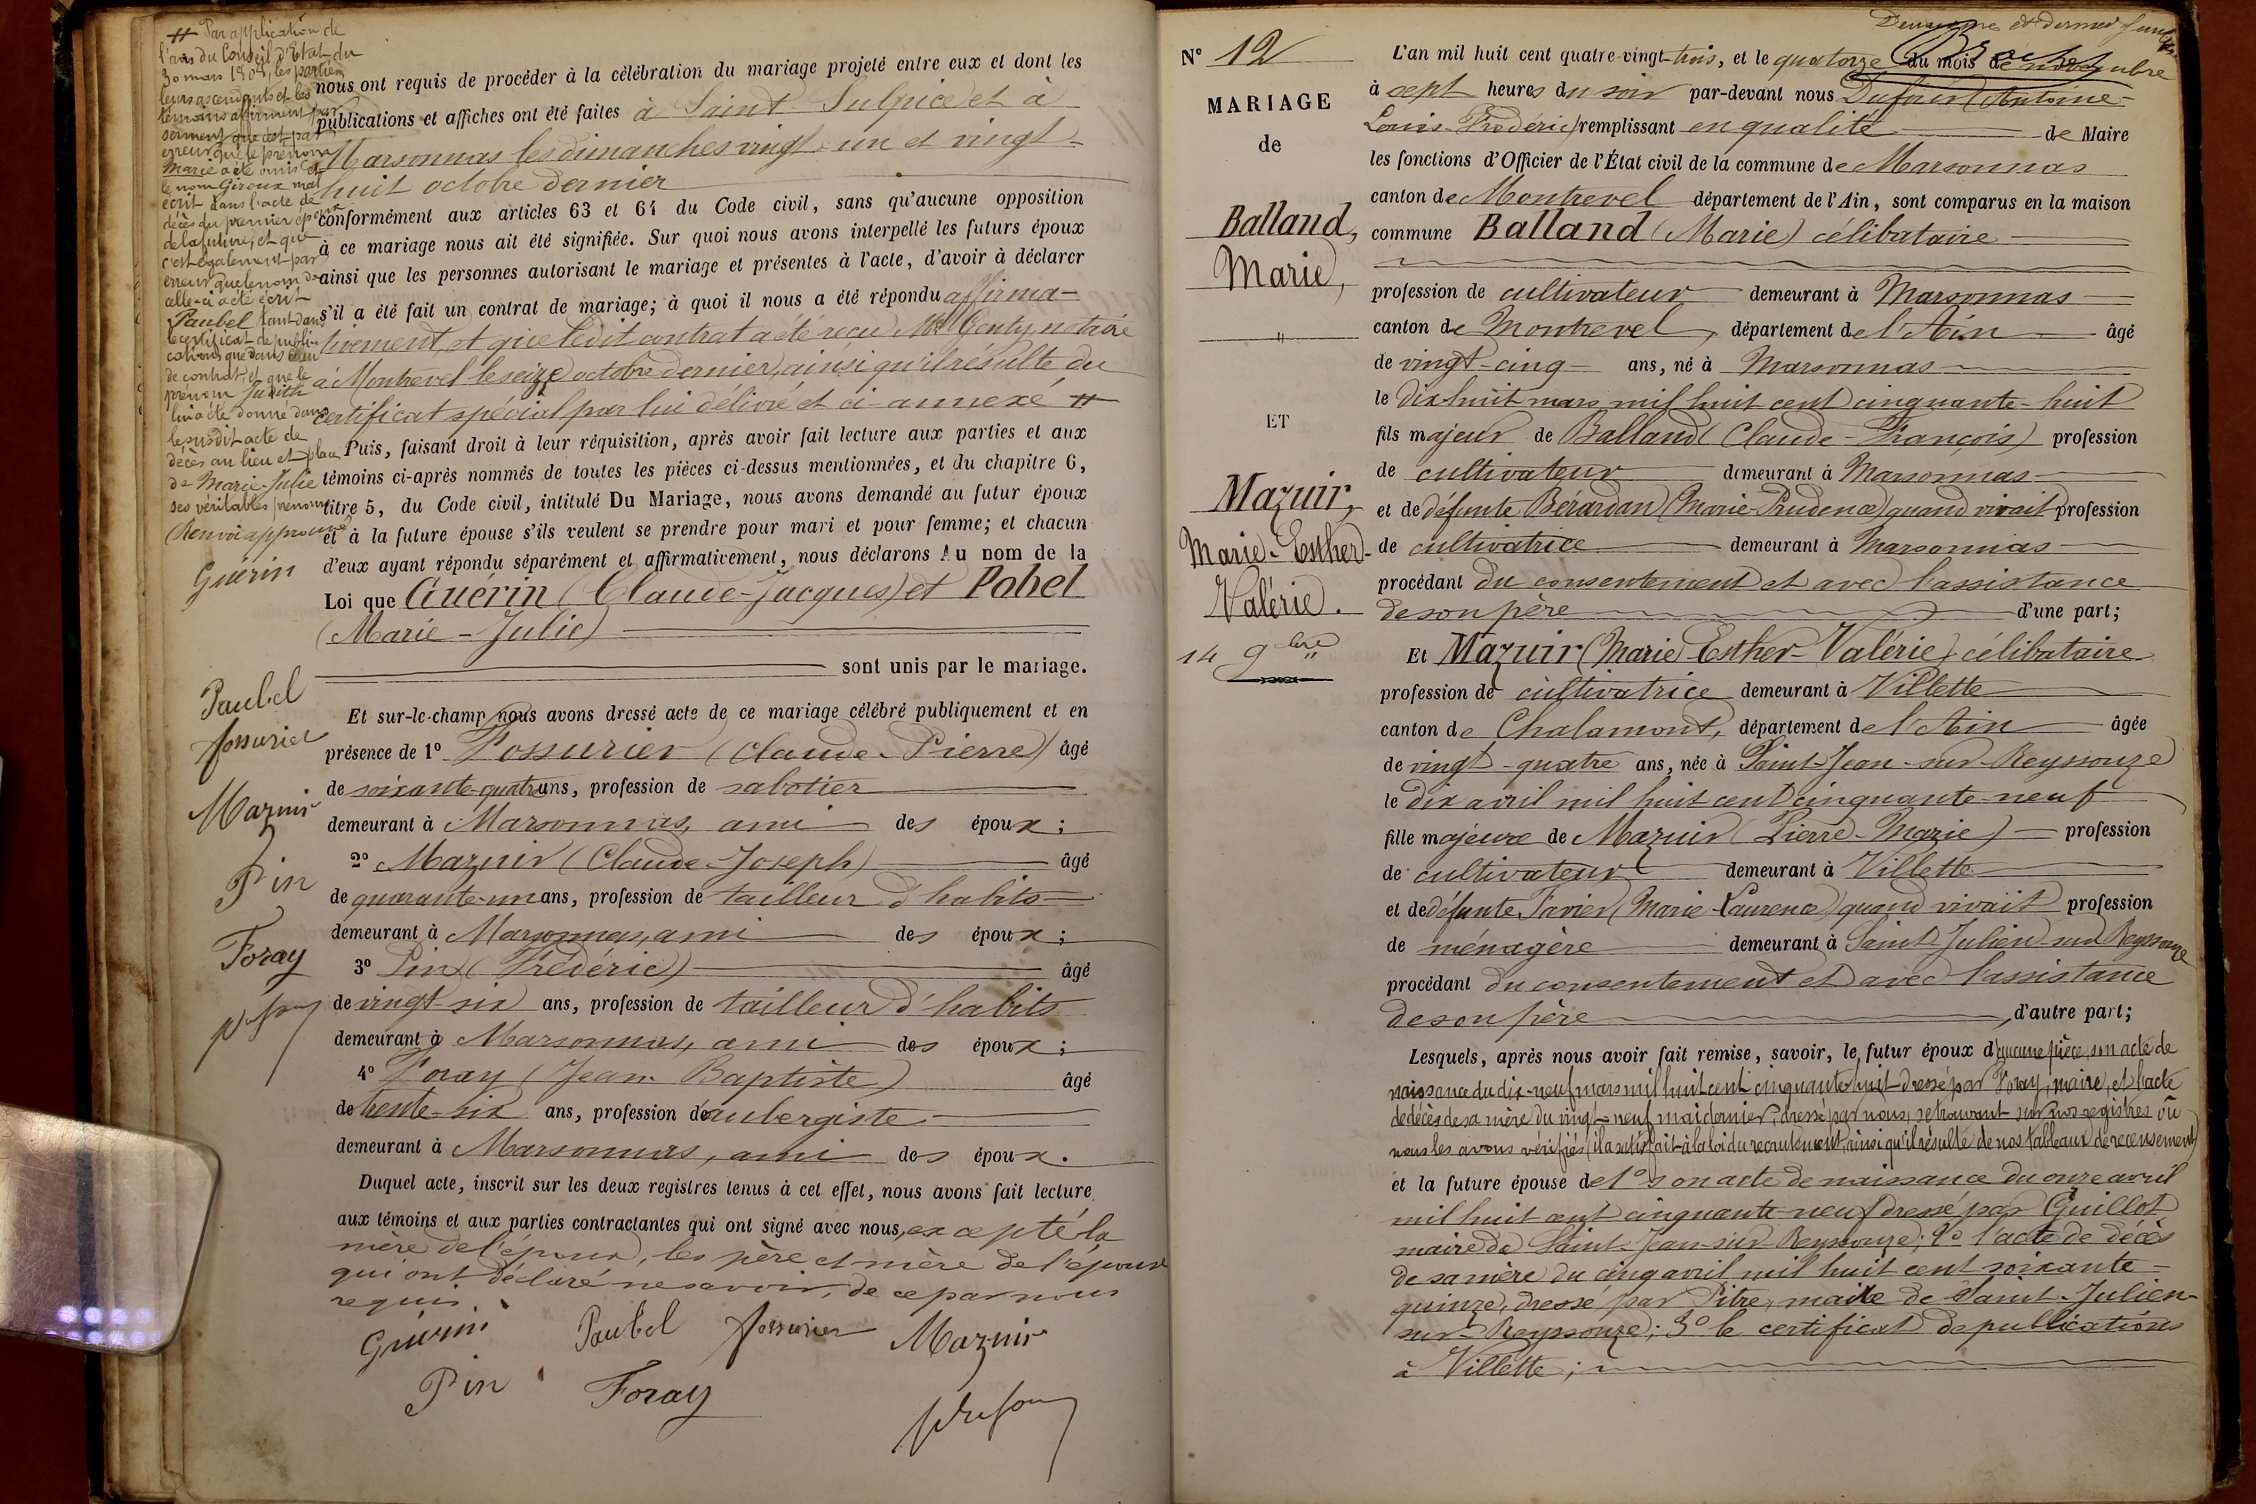 # Par application de
l'avis du Conseil d'Etat du
30 mars 1808, les parties
leurs ascendants et les
témoins affirment par
serment que c'est par
erreur que le prénom
Marie a été omis et
le nom Giroux mal
écrit dans l'acte de
décès du premier époux
de la future; et que
c'est également par
erreur que le nom de
celle-ci a été écrit
Paubel tant dans
le certificat de publi-
cations que dans celui
de contrat, et que le
prénom Judith
lui a été donné dans
le susdit acte de
décès au lieu et place
de Marie-Julie
ses véritables prénoms
(Renvoi approuvé
Guérin
Paubel
fossurier
Mazuir
Pin
Foray
nous ont requis de procéder à la célébration du mariage projeté entre eux et dont les
publications et affiches ont été faites à Saint Sulpice et à
Marsonnas les dimanches vingt-un et vingt-
huit octobre dernier
conformément aux articles 63 et 64 du Code civil, sans qu'aucune opposition
à ce mariage nous ait été signifiée. Sur quoi nous avons interpellé les futurs époux
ainsi que les personnes autorisant le mariage et présentes à l'acte, d'avoir à déclarer
s'il a été fait un contrat de mariage; à quoi il nous a été répondu affirma-
tivement, et que ledit contrat a été reçu Me Genty, notaire
à Montrevel le seize octobre dernier, ainsi qu'il résulte du
certificat spécial par lui délivré et ci-annexé #
Puis, faisant droit à leur réquisition, après avoir fait lecture aux parties et aux
témoins ci-après nommés de toutes les pièces ci-dessus mentionnées, et du chapitre 6,
titre 5, du Code civil, intitulé Du Mariage, nous avons demandé au futur époux
et à la future épouse s'ils veulent se prendre pour mari et pour femme; et chacun
d'eux ayant répondu séparément et affirmativement, nous déclarons Au nom de la
Loi que Guérin (Claude-Jacques) et Pobel
(Marie-Julie)
sont unis par le mariage.
Et sur-le-champ nous avons dressé acte de ce mariage célébré publiquement et en
présence de 1° Fossurier (Claude-Pierre) âgé
de soixante-quatre ans, profession de sabotier
demeurant à Marsonnas, ami des époux;
2° Mazuir (Claude-Joseph) âgé
de quarante-un ans, profession de tailleur d'habits
demeurant à Marsonnas, ami des époux;
3° Pin (Frédéric) âgé
de vingt-six ans, profession de tailleur d'habits
demeurant à Marsonnas, ami des époux;
4° Foray (Jean-Baptiste) âgé
de trente-six ans, profession d'aubergiste
demeurant à Marsonnas, ami des époux.
Duquel acte, inscrit sur les deux registres tenus à cet effet, nous avons fait lecture
aux témoins et aux parties contractantes qui ont signé avec nous, excepté la
mère de l'époux, les père et mère de l'épouse
qui ont déclaré ne savoir, de ce par nous
requis.
Guérin Paubel fossurier Mazuir
Pin Foray
Deuxième et dernier
N° 12
MARIAGE
de
Balland,
Marie,
"
ET
Mazuir,
Marie-Esther-
Valérie.
14 9bre
L'an mil huit cent quatre-vingt-trois, et le quatorze du mois de novembre
à sept heures du soir par-devant nous Dufour (Antoine-
Louis-Frédéric) remplissant en qualité de Maire
les fonctions d'Officier de l'État civil de la commune de Marsonnas
canton de Montrevel département de l'Ain, sont comparus en la maison
commune Balland (Marie) célibataire
profession de cultivateur demeurant à Marsonnas
canton de Montrevel, département de l'Ain âgé
de vingt-cinq ans, né à Marsonnas
le dix-huit mars mil huit cent cinquante-huit
fils majeur de Balland (Claude-François) profession
de cultivateur demeurant à Marsonnas
et de défunte Bérardan (Marie-Prudence) quand vivait profession
de cultivatrice demeurant à Marsonnas
procédant du consentement et avec l'assistance
de son père d'une part;
Et Mazuir (Marie-Esther-Valérie) célibataire
profession de cultivatrice demeurant à Villette
canton de Chalamont, département de l'Ain âgée
de vingt-quatre ans, née à Saint-Jean-sur-Reyssouze
le dix avril mil huit cent cinquante-neuf
fille majeure de Mazuir (Pierre-Marie) profession
de cultivateur demeurant à Villette
et de défunte Favier (Marie-Laurence) quand vivait profession
de ménagère demeurant à Saint-Julien-sur Reyssouze
procédant du consentement et avec l'assistance
de son père, d'autre part;
Lesquels, après nous avoir fait remise, savoir, le futur époux d'aucune pièce, son acte de
naissance du dix-neuf mars mil huit cent cinquante-huit dressé par Foray, maire, et l'acte
de décès de sa mère du vingt-neuf mai dernier, dressé par nous, se trouvant sur nos registres où
nous les avons vérifiés (il a satisfait à la loi du recrutement, ainsi qu'il résulte de nos tableaux de recensement)
et la future épouse de 1° son acte de naissance du onze avril
mil huit cent cinquante-neuf dressé par Guillot
maire de Saint-Jean-sur Reyssouze; 2° l'acte de décès
de sa mère du cinq avril mil huit cent soixante-
quinze, dressé par Pitre, maire de Saint-Julien-
sur-Reyssouze; 3° le certificat de publications
à Villette;